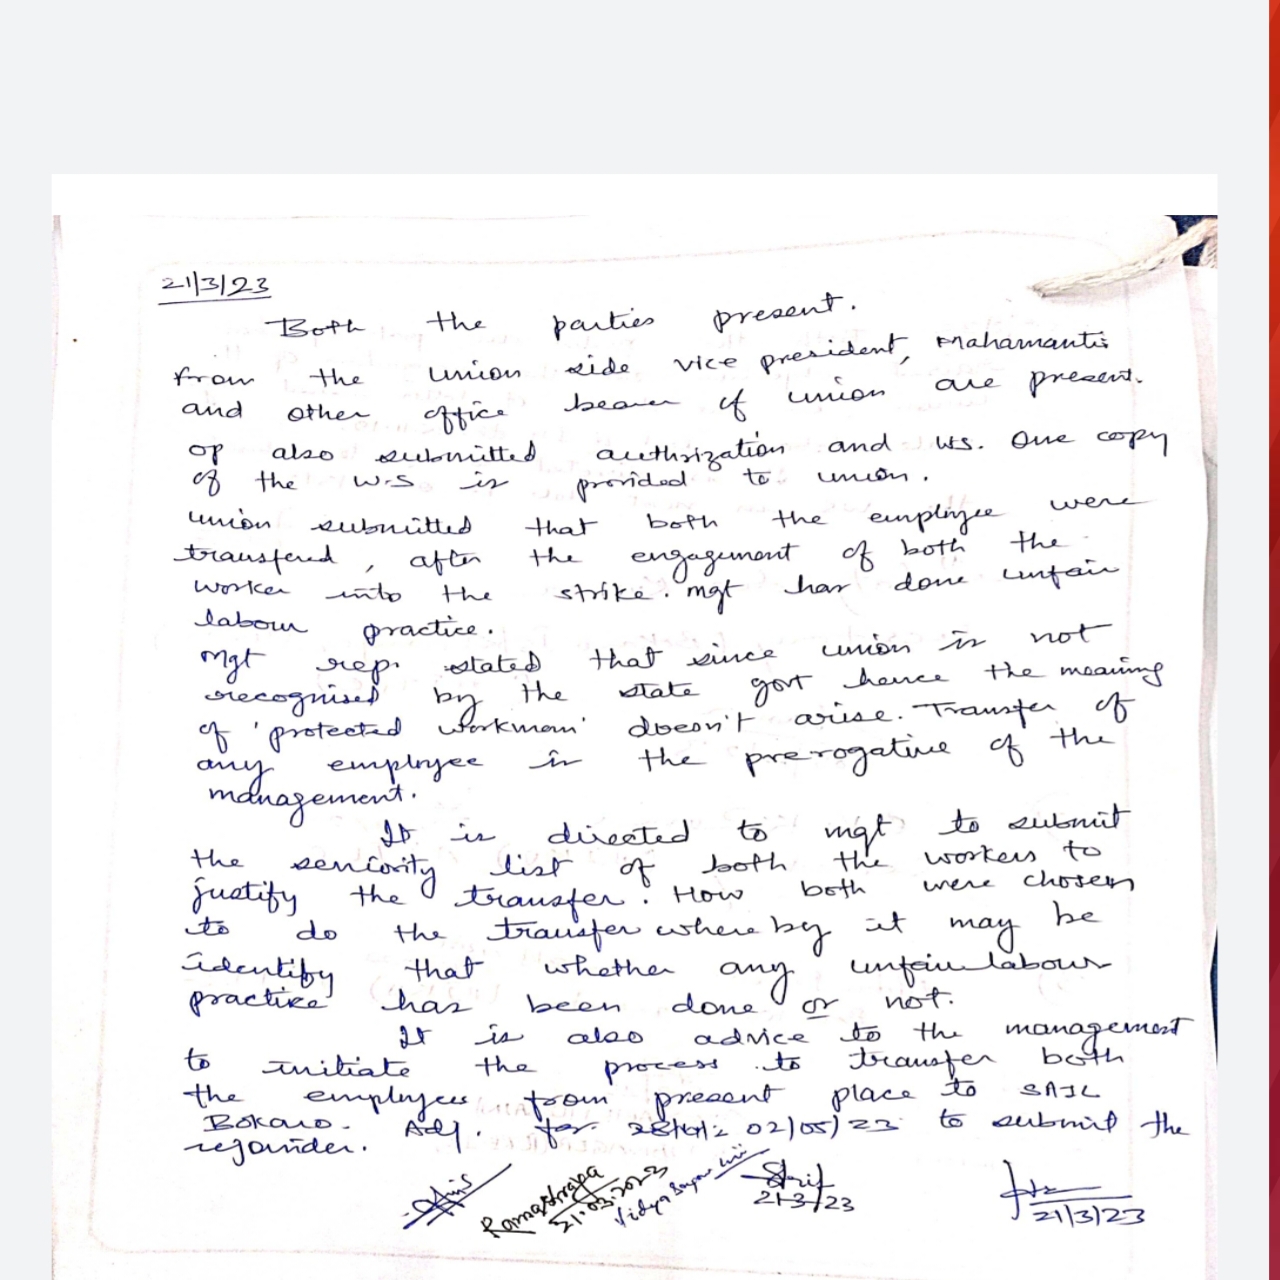 21/3/23
Both the parties present.
from the union side vice president, Mahamantri
and other office bearer of union are present.
OP also submitted authrization and ws. One copy
of the W.S is provided to union.
union submitted that both the employee were
transfered, after the engagement of both the
worker into the strike. mgt has done unfair
labour practice.
Mgt rep. stated that since union is not
recognised by the state govt hence the meaning
of 'protected workman' doesn't arise. Transfer of
any employee is the prerogative of the
management.
It is directed to mgt to submit
the seniority list of both the workers to
justify the transfer. How both were chosen
to do the transfer where by it may be
identify that whether any unfair labour
practice has been done or not.
It is also advice to the management
to initiate the process to transfer both
the employees from present place to SAIL
Bokaro. Adj. for 02/05/23 to submit the
rejoinder.
21.03.2023
21/3/23
21/3/23